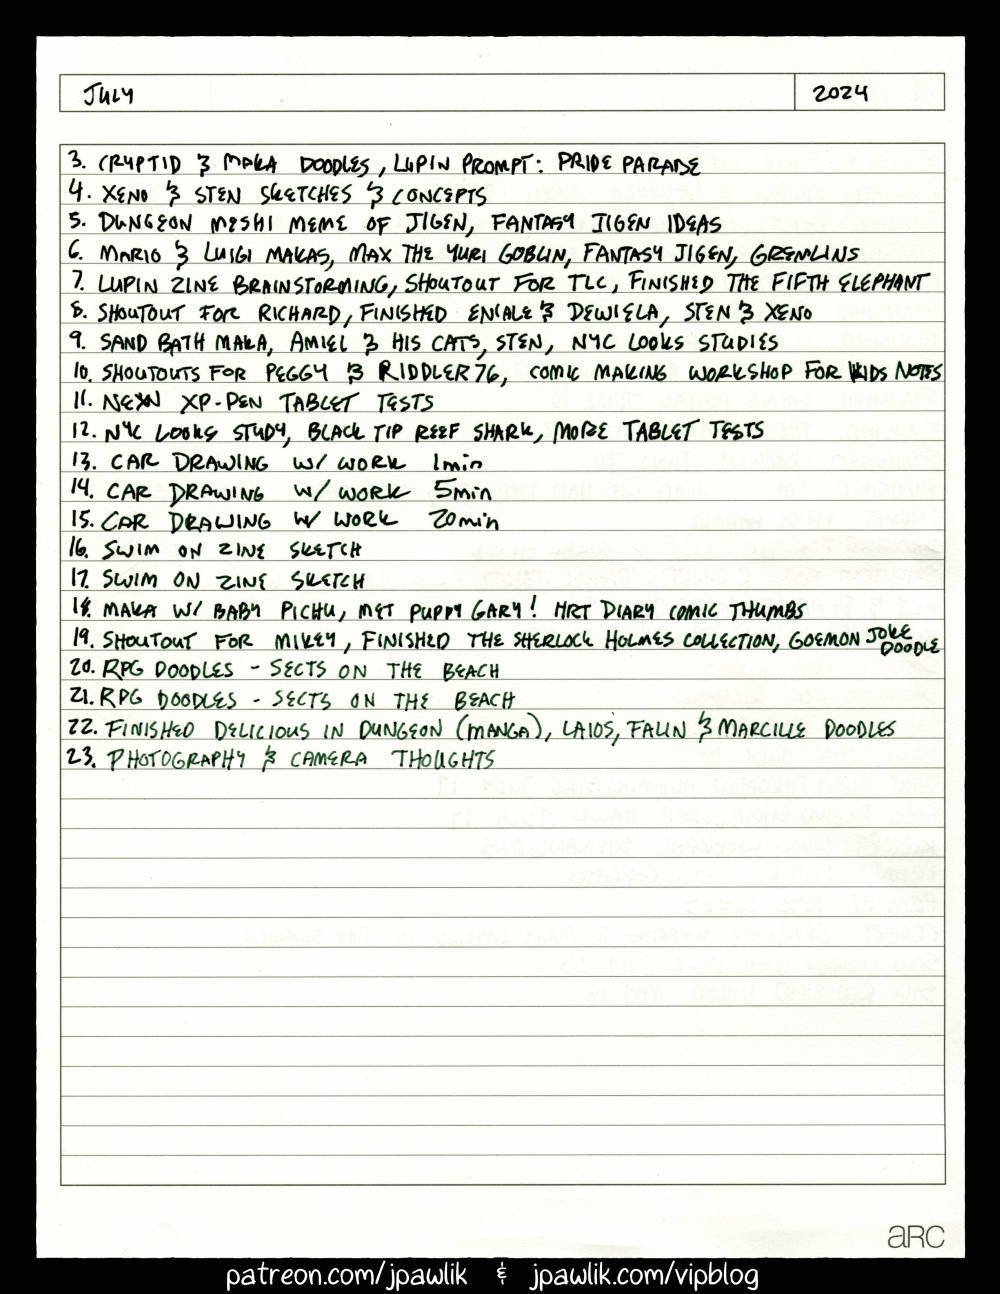 JULY 2024
3. CRYPTID & MAKA DOODLES, LUPIN PROMPT: PRIDE PARADE
4. XENO & STEN SKETCHES & CONCEPTS
5. DUNGEON MESHI MEME OF JIGEN, FANTASY JIGEN IDEAS
6. MARIO & LUIGI MAKAS, MAX THE YURI GOBLIN, FANTASY JIGEN, GREMLINS
7. LUPIN ZINE BRAINSTORMING, SHOUTOUT FOR TLC, FINISHED THE FIFTH ELEPHANT
8. SHOUTOUT FOR RICHARD, FINISHED ENIALE & DEWIELA, STEN & XENO
9. SAND BATH MAKA, AMIEL & HIS CATS, STEN, NYC LOOKS STUDIES
10. SHOUTOUTS FOR PEGGY & RIDDLER76, COMIC MAKING WORKSHOP FOR KIDS NOTES
11. NEW XP-PEN TABLET TESTS
12. NYC LOOKS STUDY, BLACK TIP REEF SHARK, MORE TABLET TESTS
13. CAR DRAWING W/ WORK 1min
14. CAR DRAWING W/ WORK 5min
15. CAR DRAWING W/ WORK 20min
16. SWIM ON ZINE SKETCH
17. SWIM ON ZINE SKETCH
18. MAKA W/ BABY PICHU, MET PUPPY GARY! HRT DIARY COMIC THUMBS
19. SHOUTOUT FOR MIKEY, FINISHED THE SHERLOCK HOLMES COLLECTION, GOEMON JOKE DOODLE
20. RPG DOODLES - SECTS ON THE BEACH
21. RPG DOODLES - SECTS ON THE BEACH
22. FINISHED DELICIOUS IN DUNGEON (MANGA), LAIOS, FALIN & MARCILLE DOODLES
23. PHOTOGRAPHY & CAMERA THOUGHTS
aRC
patreon.com/jpawlik & jpawlik.com/vipblog